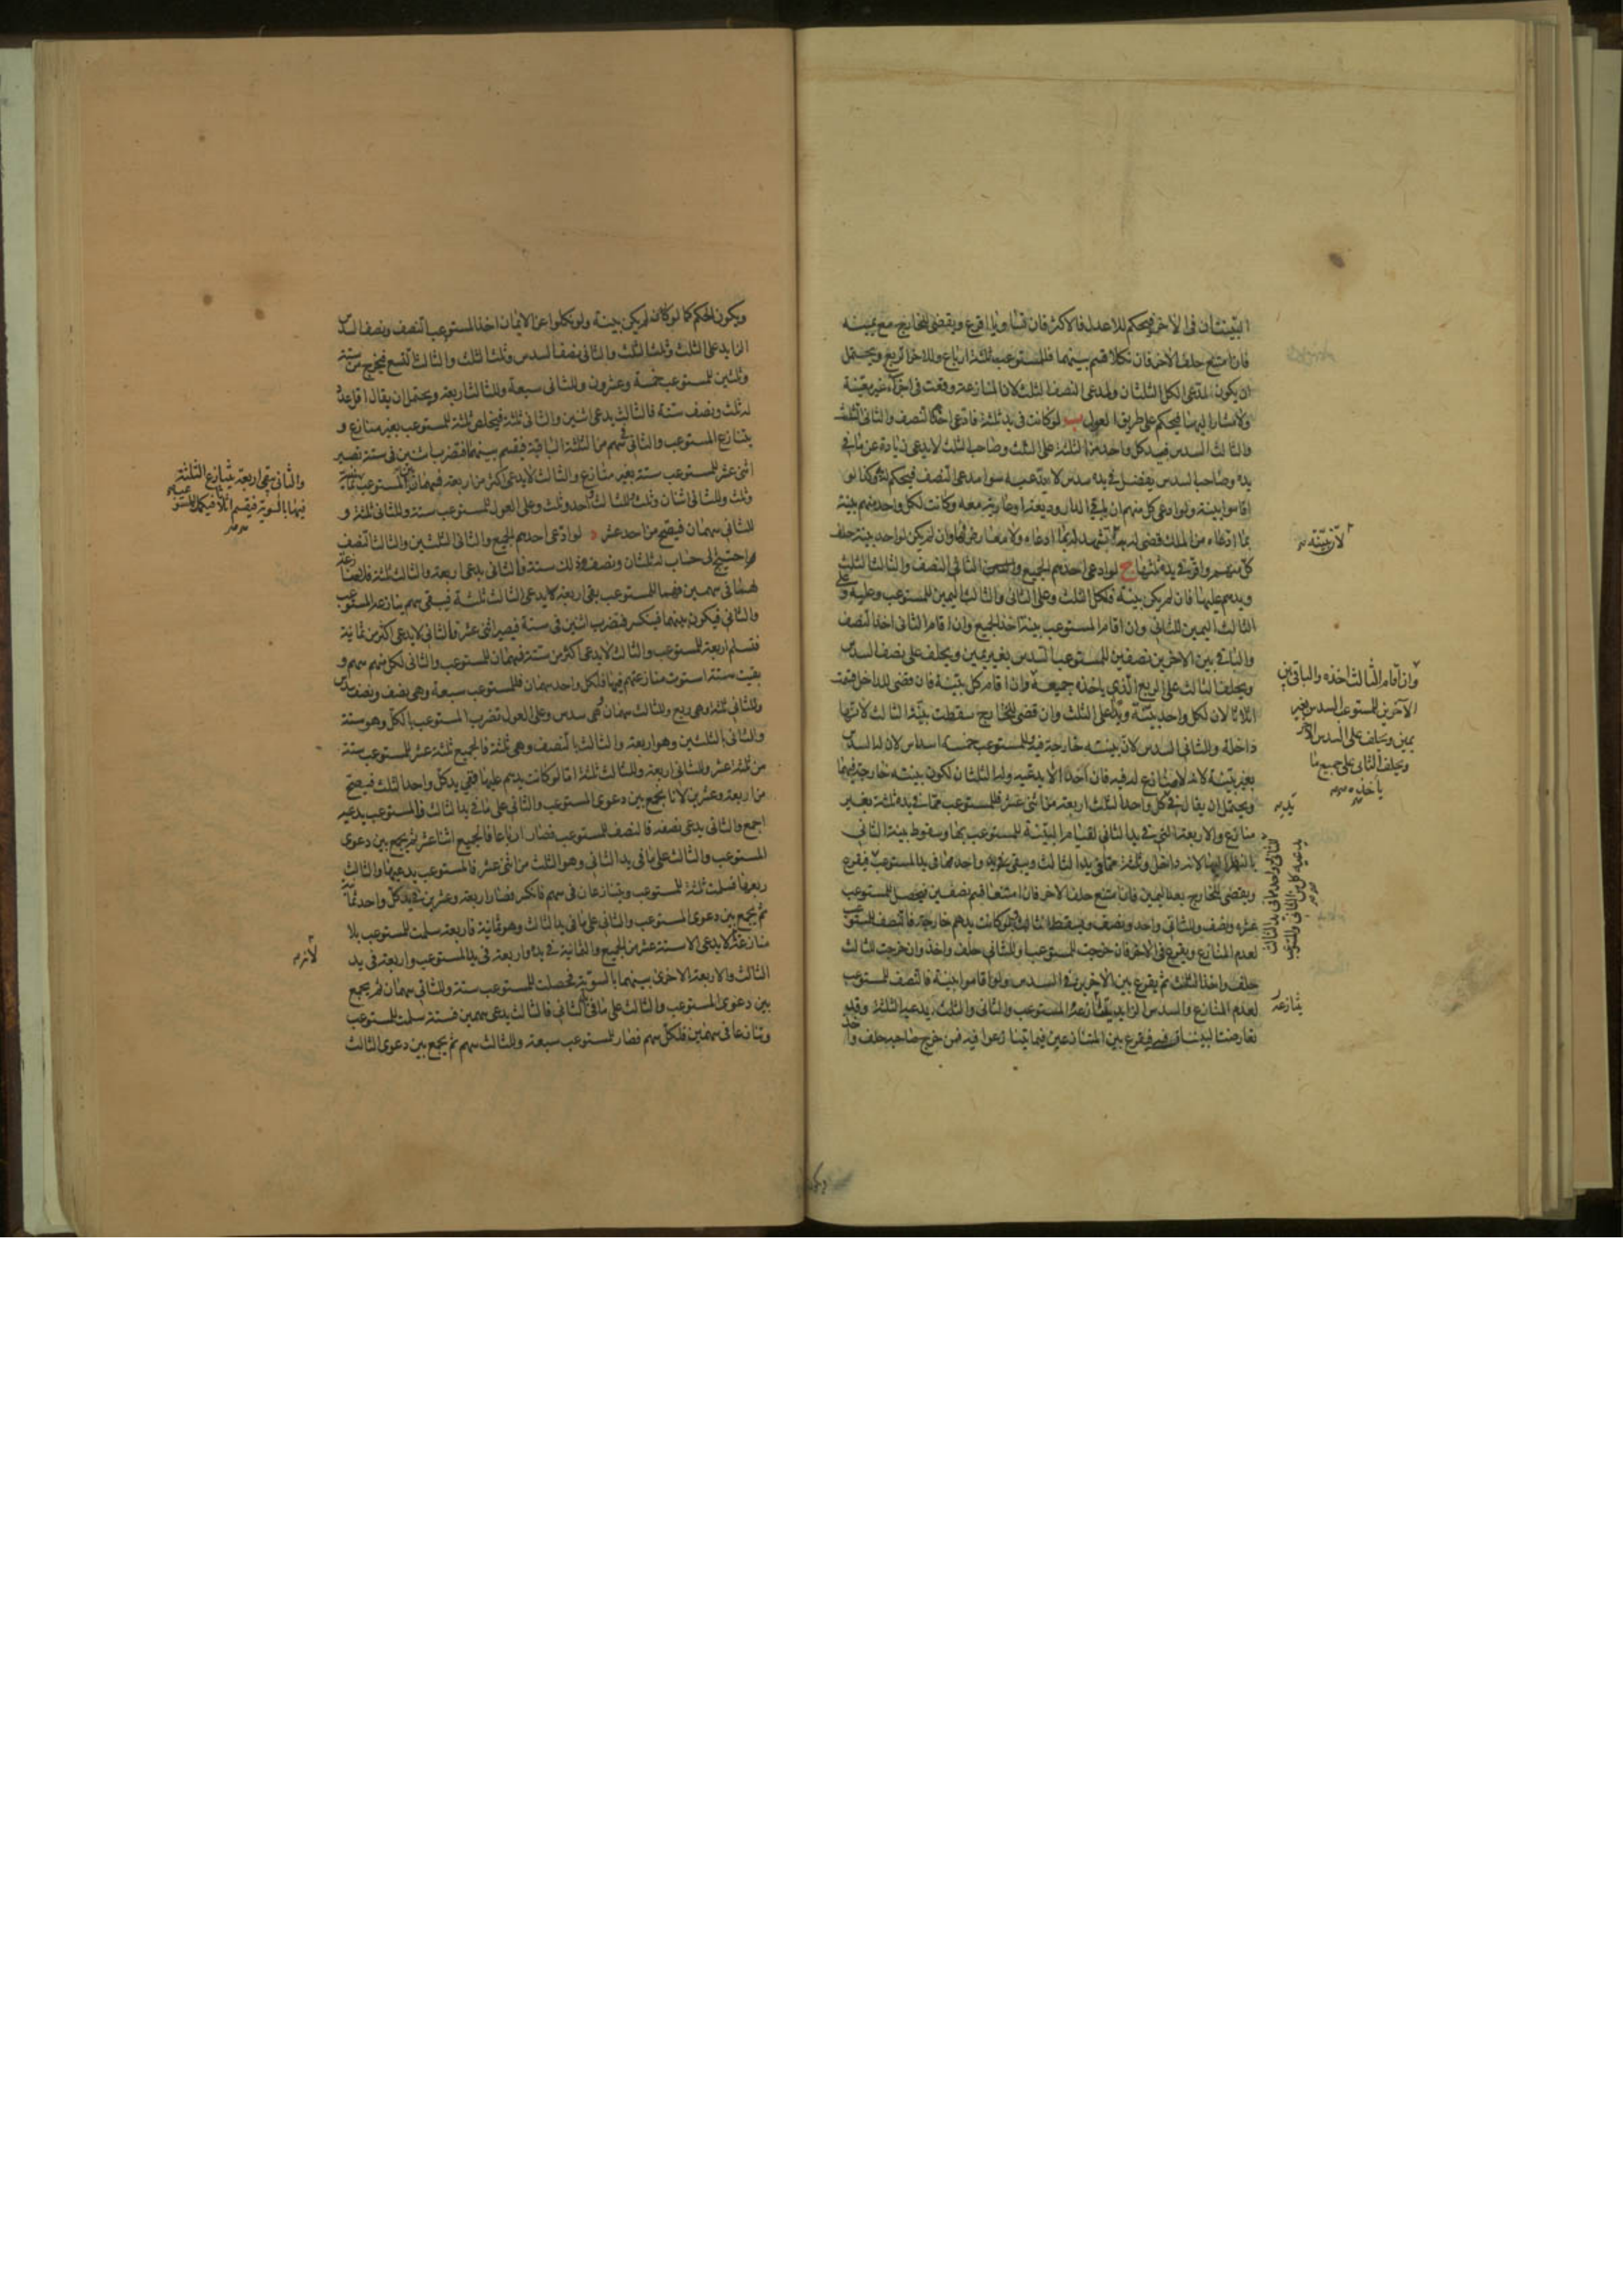 البينتان فى الآخر فيحكم للاعدل فالاكثر فان تساويا اقرع ويقضى للخارج مع يمينه
فان امتنع حلف الآخر فان نكلا قسم بينهما فللمستوعب ثلثة ارباع وللآخر الربع ويحتمل
ان يكون لمدعى الكل الثلثان ولمدعى النصف الثلث لان المنازعة وقعت فى اجزاء غير معينة
ولا مشار اليها فيحكم على طريق العول ب لو كانت فى يد ثلثة فادعى احدها النصف والثانى الثلث
والثالث السدس فيد كل واحد من الثلثة على الثلث وصاحب الثلث لا يدعى زيادة عن ما فى
يده وصاحب السدس يفضل فى يده سدس لا يدعيه سوا مدعى النصف فيحكم له به وكذا لو
اقاموا بينة ولو ادعى كل منهم ان باقى الدار وديعة او عارية معه وكانت لكل واحد منهم بينة
بما ادعاه من الملك قضى له به تشهد له بما ادعاه ولا معارض لها وان لم يكن لواحد بينة حلف
كل منهم واقر فى يده ثلثها ج لو ادعى احدهم الجميع والثانى النصف والثالث الثلث
ويدهم عليها فان لم يكن بينة فلكل الثلث وعلى الثانى والثالث اليمين للمستوعب وعليه وعلى
الثالث اليمين للثانى وان اقام المستوعب بينة اخذ الجميع وان اقام الثانى اخذ النصف
والباقى بين الآخرين نصفين للمستوعب السدس بغير يمين ويحلف على نصف السدس
ويحلف الثالث على الربع الذي ياخذه جميعه وان اقام كل بينة فان قضى للداخل قسمت
اثلاثا لان لكل واحد بينة ويدا على الثلث وان قضى للخارج سقطت بينة الثالث لانها
داخلة وللثانى السدس لان بينته خارجة فيه وللمستوعب خمسة اسداس لان له السدس
بغير بينة لانه لا منازع له فيه فان احدا لا يدعيه وله الثلثان لكون بينته خارجة فيهما
ويحتمل ان يقال فى كل واحد الثلث اربعة من اثنى عشر فللمستوعب مما فى يده ثلثة بغير
منازع والاربعة التى فى يد الثانى لقيام البينة للمستوعب بها وسقوط بينة الثانى
بالنظر اليها لانه داخل وثلثة مما فى يد الثالث ويبقى واحد مما فى يد المستوعب فيقرع
ويقضى للخارج بعد اليمين فان امتنع حلف الآخر فان امتنعا قسم نصفين فيحصل للمستوعب
عشرة ونصف وللثانى واحد ونصف ويسقط الثالث ولو كانت يدهم خارجة فالنصف للمستوعب
لعدم المنازع ويقرع فى الآخر فان خرجت للمستوعب او للثانى حلف واخذ وان خرجت للثالث
حلف واخذ الثلث ثم يقرع بين الآخرين فى السدس ولو اقاموا بينة فالنصف للمستوعب
لعدم المنازع والسدس الزايد يتنازعه المستوعب والثانى والثلث يدعيه الثلثة وقد
تعارضت البينات فيه فيقرع بين المتنازعين فيما تنازعوا فيه فمن خرج صاحبه حلف واخذ
لان بينته
وان اقام الثالث اخذه والباقى بين
الآخرين للمستوعب السدس بغير
يمين ويحلف على السدس الآخر
ويحلف الثانى على جميع ما
ياخذه
يده
يدعيه كل من الثانى والمستوعب
يتنازعه
ويكون الحكم كما لو كان لم يكن بينة ولو نكلوا عن الايمان اخذ المستوعب النصف ونصف السدس
الزايد على الثلث وثلث الثلث والثانى نصف السدس وثلث الثلث والثالث التسع فيخرج من ستة
وثلثين للمستوعب خمسة وعشرون وللثانى سبعة وللثالث اربعة ويحتمل ان يقال اقل عدد
له ثلث ونصف ستة فالثالث يدعى اثنين والثانى ثلثة فيخلص ثلثة للمستوعب بغير منازع و
يتنازع المستوعب والثانى فى سهم من الثلثة الباقية فيقسم بينهما فتضرب اثنين فى ستة تصير
اثنى عشر للمستوعب ستة بغير منازع والثالث لا يدعى اكثر من اربعة فيهما للمستوعب ثمانية
وثلث وللثانى اثنان وثلث وللثالث واحد وثلث وعلى العول للمستوعب ستة وللثانى ثلثة و
للثانى سهمان فيصح من احد عشر د لو ادعى احدهم الجميع والثانى الثلثين والثالث النصف
واحتيج الى حساب له ثلثان ونصف وذلك ستة فالثانى يدعى اربعة والثالث ثلثة فلا منازعة
لهما فى سهمين فهما للمستوعب بقى اربعة لا يدعى الثالث ثلثة فيبقى سهم ينازعه المستوعب
والثانى فيكون بينهما فينكسر فتضرب اثنين فى ستة فيصير اثنى عشر فالثانى لا يدعى اكثر من ثمانية
فتسلم اربعة للمستوعب والثالث لا يدعى اكثر من ستة فسهمان للمستوعب والثانى لكل منهم سهم و
بقيت ستة استوت منازعتهم فيها فلكل واحد سهمان فللمستوعب سبعة وهى نصف ونصف سدس
وللثانى ثلثة وهى ربع وللثالث سهمان وهى سدس وعلى العول تضرب المستوعب بالكل وهو ستة
والثانى بالثلثين وهو اربعة والثالث بالنصف وهى ثلثة فالجميع ثلثة عشر للمستوعب ستة
من ثلثة عشر وللثانى اربعة وللثالث ثلثة اما لو كانت يدهم عليها ففى يد كل واحد الثلث فيصح
من اربعة وعشرين لانا نجمع بين دعوى المستوعب والثانى على ما فى يد الثالث فالمستوعب يدعيه
اجمع والثانى يدعى نصفه فالنصف للمستوعب فصار ارباعا فالجميع اثنا عشر ثم يجمع بين دعوى
المستوعب والثالث على ما فى يد الثانى وهو الثلث من اثنى عشر فالمستوعب يدعيها والثالث
ربعها فسلمت ثلثة للمستوعب ويتنازعان فى سهم فانكسر فصار اربعة وعشرين فى يد كل واحد ثمانية
ثم يجمع بين دعوى المستوعب والثانى على ما فى يد الثالث وهو ثمانية فاربعة سلمت للمستوعب بلا
منازعة لا يدعى الا ستة عشر من الجميع والثمانية فى يده واربعة فى يد المستوعب واربعة فى يد
الثالث والاربعة الاخرى بينهما بالسوية فحصلت للمستوعب ستة وللثانى سهمان ثم يجمع
بين دعوى المستوعب والثالث على ما فى يد الثانى فالثالث يدعى سهمين فستة سلمت للمستوعب
وتنازعا فى سهمين فلكل سهم فصار للمستوعب سبعة وللثالث سهم ثم يجمع بين دعوى الثالث
والثانى بقى اربعة يتنازع الثلثة
فيها بالسوية فيقسم اثلاثا فيكمل للمستوعب
لانه